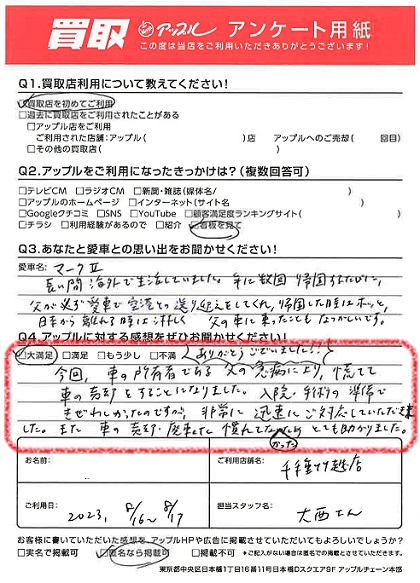 買取 アップル アンケート用紙
この度は当店をご利用いただきありがとうございます!
Q1.買取店利用について教えてください!
☑買取店を初めてご利用
□過去に買取店をご利用されたことがある
□アップル店をご利用
ご利用された店舗:アップル( )店 アップルへのご売却( 回目)
□その他の買取店( )
Q2.アップルをご利用になったきっかけは?(複数回答可)
□テレビCM □ラジオCM □新聞・雑誌(媒体名/ )
□アップルのホームページ □インターネット(サイト名 )
□Googleクチコミ □SNS □YouTube □顧客満足度ランキングサイト( )
□チラシ □利用経験があるので □紹介 ☑看板を見て
Q3.あなたと愛車との思い出をお聞かせください!
愛車名: マークⅡ
長い間 海外で生活していました。年に数回 帰国するたびに、
父が必ず愛車で空港との送り迎えをしてくれ、帰国した時はホッと、
日本から離れる時は淋しく 父の車に乗ったこともなつかしいです。
Q4.アップルに対する感想をぜひお聞かせください!
☑大満足 □満足 □もう少し □不満 (ありがとうございました!!)
今回、車の所有者である父の急病により、慌てて
車の売却をすることになりました。入院・手術の準備で
きぜわしかったのですが、非常に迅速にご対応していただきま
した。また 車の売却・廃車した 慣れてなかった とても助かりました。
お名前:
ご利用店舗名: 千種竹越店
ご利用日: 2023, 8/16〜8/17
担当スタッフ名: 大西さん
お客様に書いていただいた感想を、アップルHPや広告に掲載させていただいてもよろしいでしょうか?
□実名で掲載可 ☑匿名なら掲載可 □掲載不可 *ご記入がない場合は匿名での掲載とさせていただきます。
東京都中央区日本橋1丁目16番11号日本橋DスクエアSF アップルチェーン本部